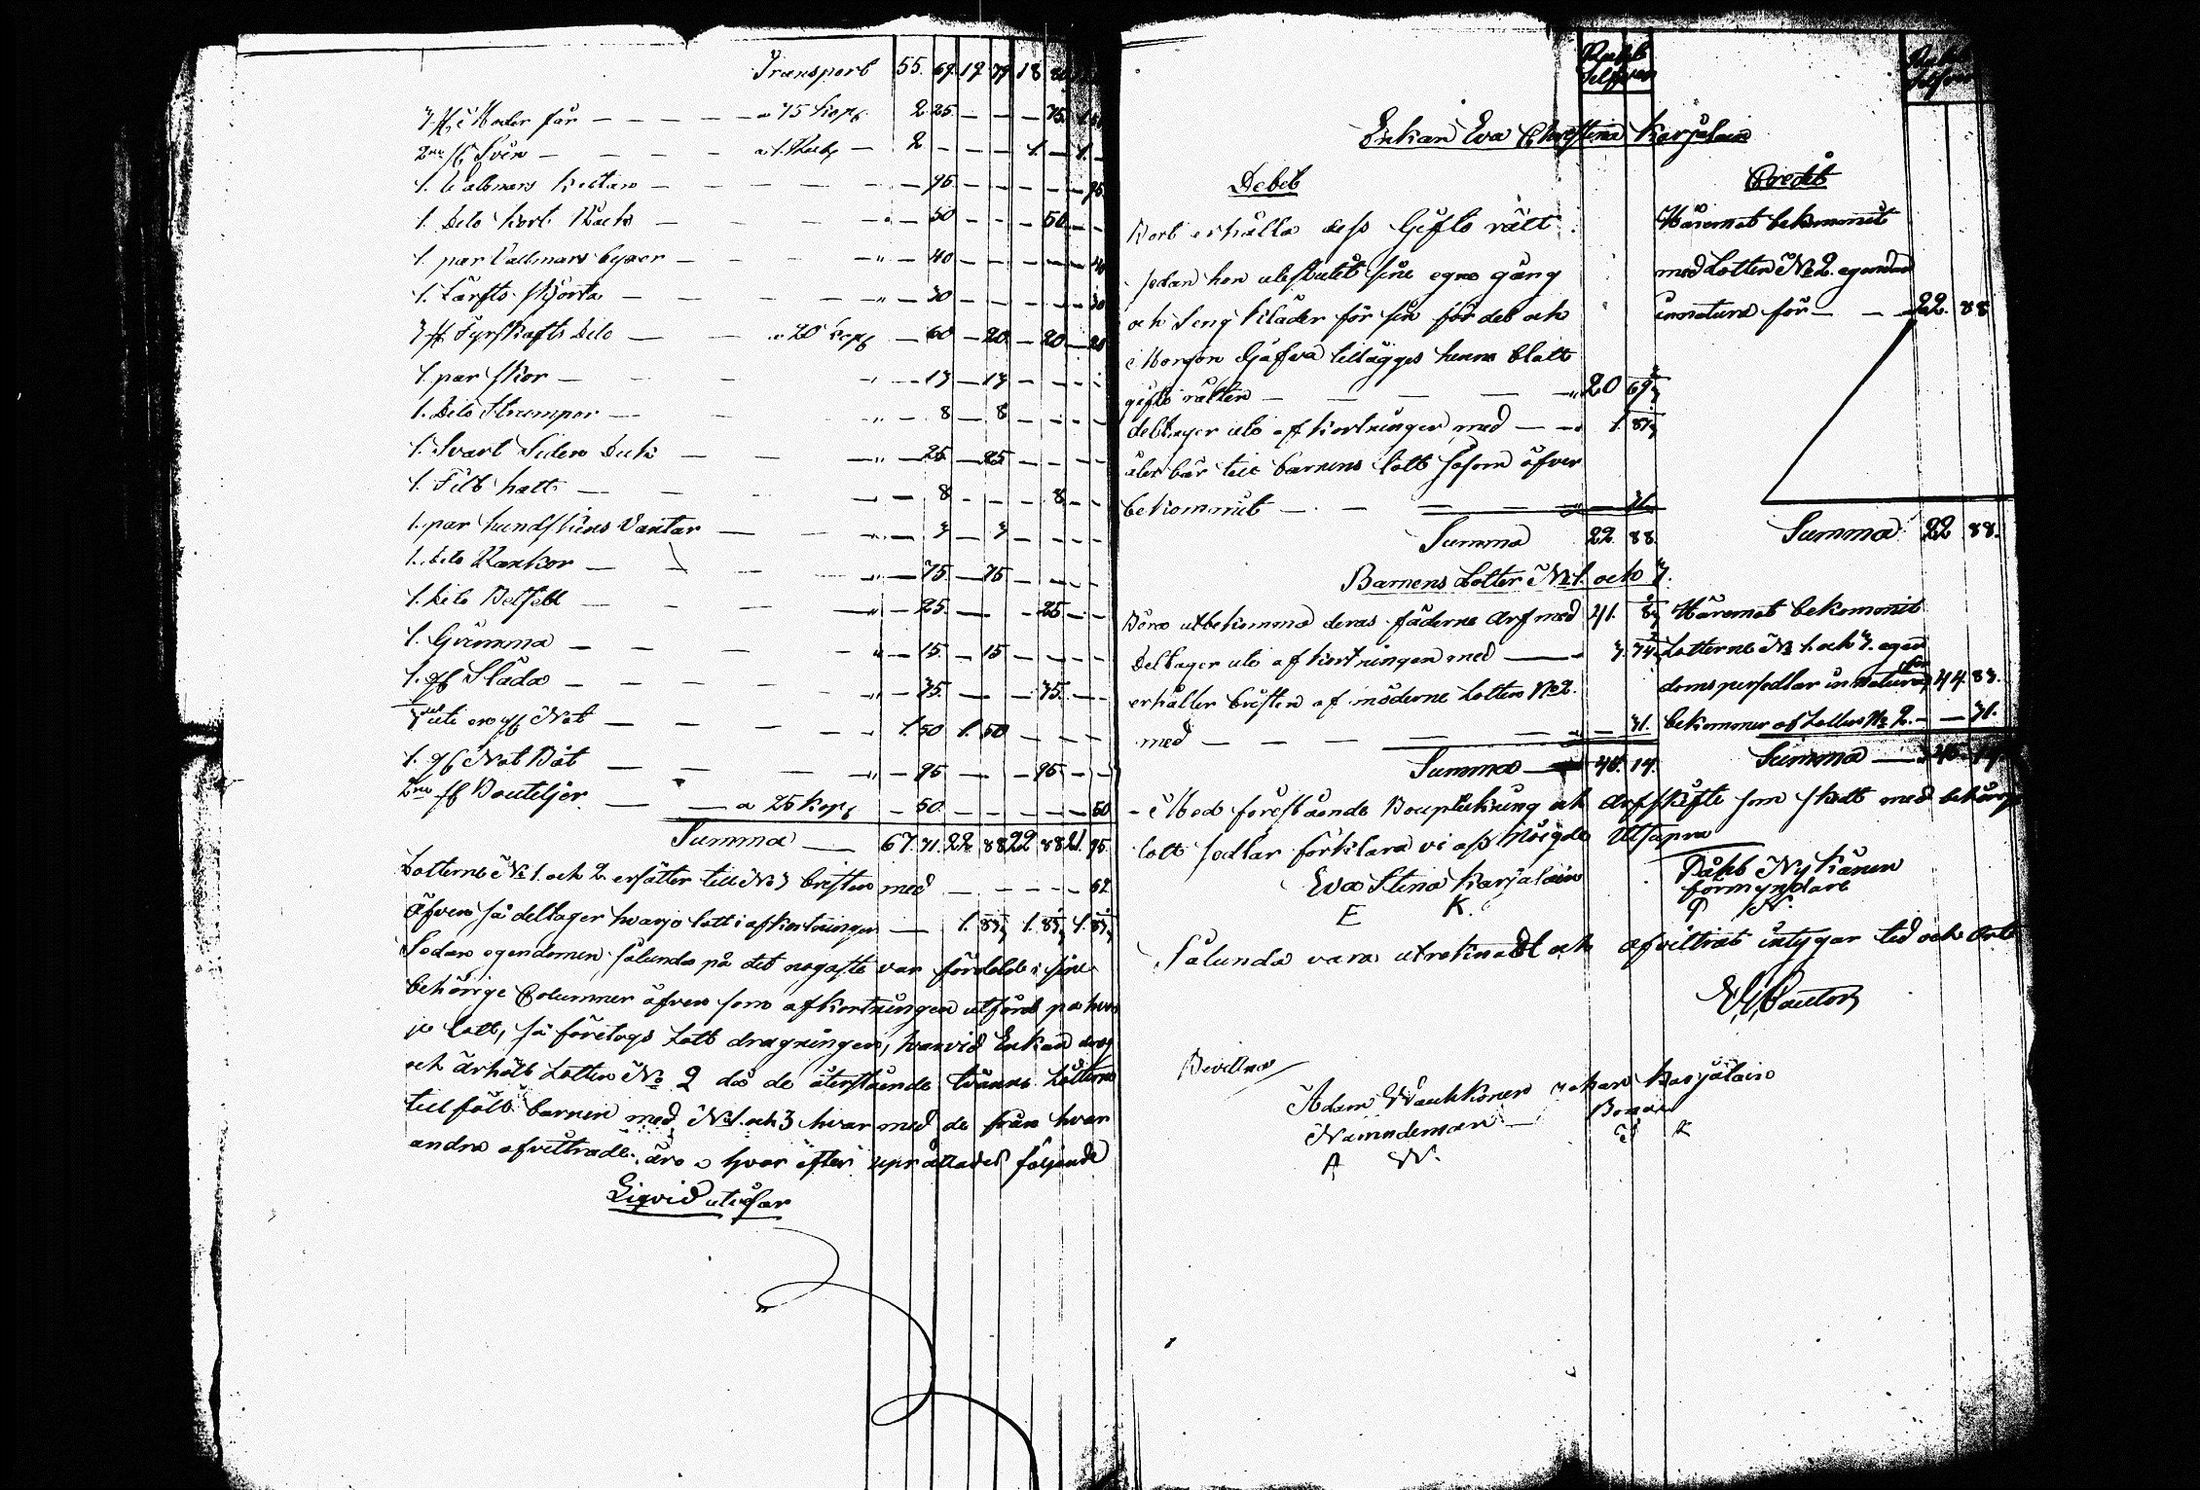 Transport 55. 69. 19 79 18 
3 st. Moder får — — — — a 75 kop. 2 25 — — — 75. 1. 50
2ne st Svin — — — — a 1. Rub. — 2 — — — 1. — 1. —
1. Vallmars — — — — — — 95 — — — — — 95
1. Dito kort — — — — — 50 — — — 50 — —
1. par Vallmars byxor — — — — „ — 40 — — — — — 40
1. Lärfts skjorta — — — — „ — 30 — — — — — 30
3 st. Fyrskafts Dito — — „ 20 kop. — 60 — 20 — 20 — 20
1. par skor — — — — 13 — 13 — — — —
1. Dito Strumpor — — — — „ — 8 — 8 — — — —
1. Svart Siden Duk — — — „ — 25 — 25 — — — —
1. Filt hatt — — — — 8 — — — 8 — —
1. par hundskins Vantar — — — 3 — 3 — — — —
1. dito — — — „ — 75 — 75 — — — —
1. dito — — — „ — 25. — — — 25 — —
1. Grimma — — — — „ — 15. — 15 — — — —
1. gl Släda — — — — „ — 75. — — — 75. — —
uti en gl Not — — — — 1. 50 1. 50 — — — —
1. gl Not Båt — — — — „ — 95 — — — 95 — —
2ne st Bouteljer — — a 25 kop. — 50 — — — — — 50
Summa — 67. 71. 22 88 22 88 21. 95
Lotterne No 1. och 2 ersätter till No 3 bristen med — — — — — 62
Äfven så deltager hvarje lott i afkortningen — 1. 1. 1.
Sedan egendomen sålunda på det nogaste var fördelde i sine
behörige Columner äfven som afkortningen utförd på hvar
je lott, så företogs Lott dragningen, hvarvid Enkan drog
och ärhölt Lotten No 2 då de återstående tvänne Lotterne
tillföll barnen med No 1. och 3 hvar med de från hvar
andra afvittrade äro, hvar efter upprättades följande
Liqvid utvisar
Enkan Eva Christina Karjalain
Debet
Bort erhålla dess Gifto rätt
sedan hon uteslutit sine egna gång
och Seng kläder för sin fördel och
Morgon Gåfva tillägges henne blott
gifto rätten — — — — „ 20 69
deltager uti afkortningen med — — 1. 87
äter bär till barnens lott såsom öfver
bekommit — — — — 31.
Summa 22. 88.
Credit
Häremot bekommit
med Lotten No 2. egendom
innatura för — — 22. 88
Summa 22 88.
Barnens Lotter No 1. och 3.
Böra utbekomma deras fäderne Arf med 41. 8
Deltager uti afkortningen med — — 3. 74
erhåller bristen af möderne Lotten No 2.
med — — — — — 31.
Summa — 45. 14.
Häremot bekommit
Lotterne No 1. och 3. egen
doms persedlar in natura för 44 83.
bekommer af Lotten No 2. — — 31.
Summa — 45. 14.
Med förestående Boupteckning och Arfskifte som skedt med behörige
lott sedlar förklara vi oss nöigde Utsupra
Eva Stina Karjalain
E K.
Påhl Nykänen
förmyndare
P N.
Sålunda vara uträknadt och afvittrat intygar tid och Ort
Bevittna
Adam Wauhkonen
Nämndeman
A W.
Johan Karjalain
Bonde
J K